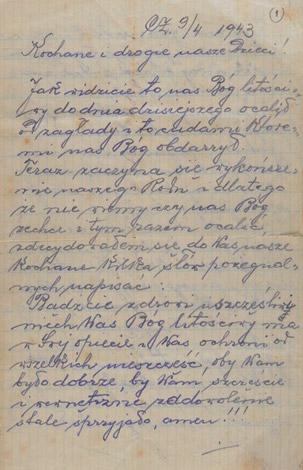 ①
Cz. 9/4 1943
Kochane i drogie nasze Dzieci!
Jak widzicie to nas Bóg litości-
wy do dnia dzisiejszego ocalił
od zagłady i to cudami które-
mi nas Bóg obdarzył.
Teraz zaczyna się wykończe-
nie naszego i dlatego
że nie wiemy czy nas Bóg
zechce i tym razem ocalić,
zdecydowałem się do Was nasze
Kochane kilka słów pożegnal-
nych napisać:
Bądźcie zdrowi i szczęśliwi
niech Was Bóg litościwy ma
w Swej opiece i Was ochroni od
wszelkich nieszczęść, oby Wam
było dobrze, by Wam szczęście
i wewnętrzne zadowolenie
stale sprzyjało, amen!!!